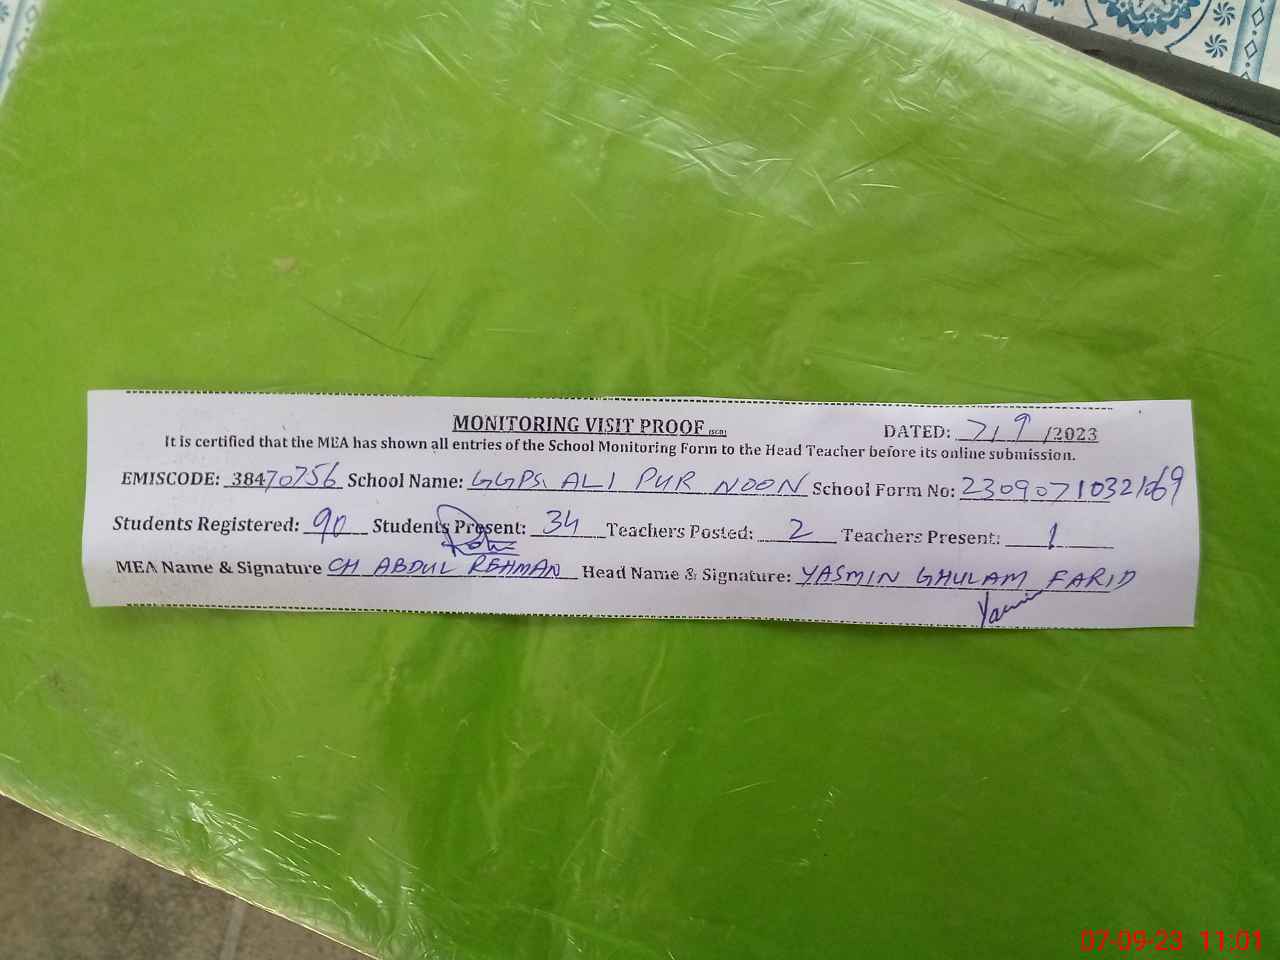 MONITORING VISIT PROOF DATED: 7/9/2023
It is certified that the MEA has shown all entries of the School Monitoring Form to the Head Teacher before its online submission.
EMISCODE: 38470756 School Name: GGPS. ALI PUR NOON School Form No:
Students Registered: 90 Students Present: 34 Teachers Posted: 2 Teachers Present: 1
MEA Name & Signature CH ABDUL REHMAN Head Name & Signature: YASMIN GHULAM FARID
07-09-23 11:01